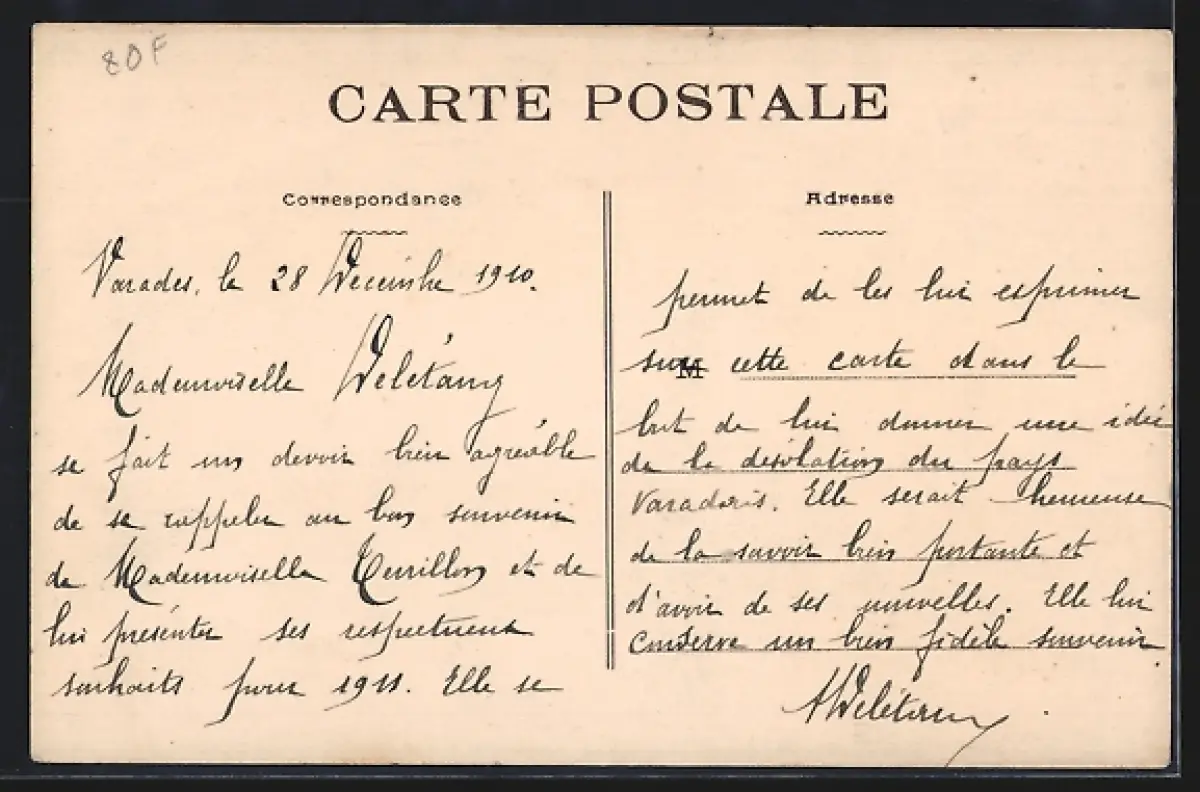 80F
CARTE POSTALE
Correspondance
Varades, le 28 Décembre 1910.
Mademoiselle Delétang
se fait un devoir bien agréable
de se rappeler au bon souvenir
de Mademoiselle Teurillon et de
lui présenter ses respectueux
souhaits pour 1911. Elle se
Adresse
permet de les lui exprimer
sur cette carte dans le
but de lui donner une idée
de la désolation du pays
Varadais. Elle serait heureuse
de la savoir bien portante et
d'avoir de ses nouvelles. Elle lui
conserve un bien fidèle souvenir
M
ADelétang